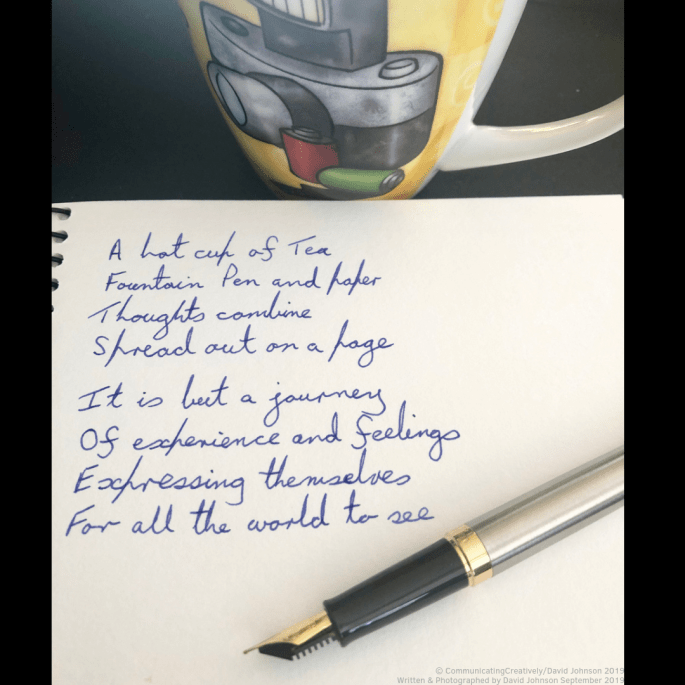 A hot cup of Tea
Fountain Pen and paper
Thoughts combine
Spread out on a page
It is but a journey
Of experience and feelings
Expressing themselves
For all the world to see
© CommunicatingCreatively/David Johnson 2019
Written & Photographed by David Johnson September 2019